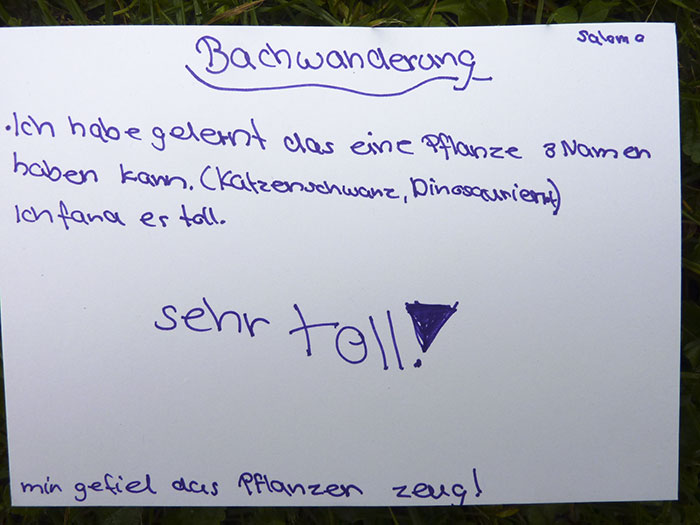 Salome
Bachwanderung
·Ich habe gelernt das eine Pflanze 3 Namen
haben kann. (Katzenschwanz,
Ich fand es toll.
sehr toll!
mir gefiel das Pflanzen zeug!